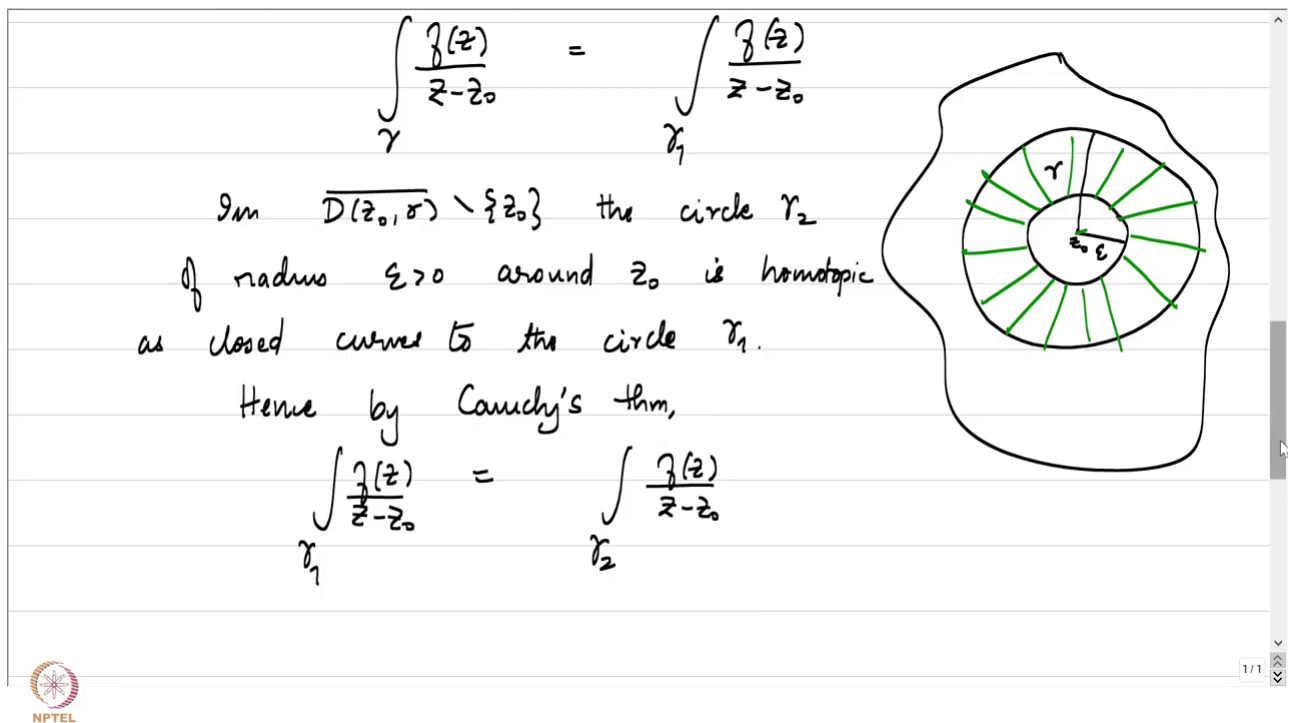 ∫_γ f(z)/(z-z₀) = ∫_γ₁ f(z)/(z-z₀)
Im D̅(̅z̅₀̅,̅r̅)̅ \ {z₀} the circle γ₂
of radius ε>0 around z₀ is homotopic
as closed curves to the circle γ₁.
Hence by Cauchy's thm,
∫_γ₁ f(z)/(z-z₀) = ∫_γ₂ f(z)/(z-z₀)
r
z₀ ε
1/1
NPTEL